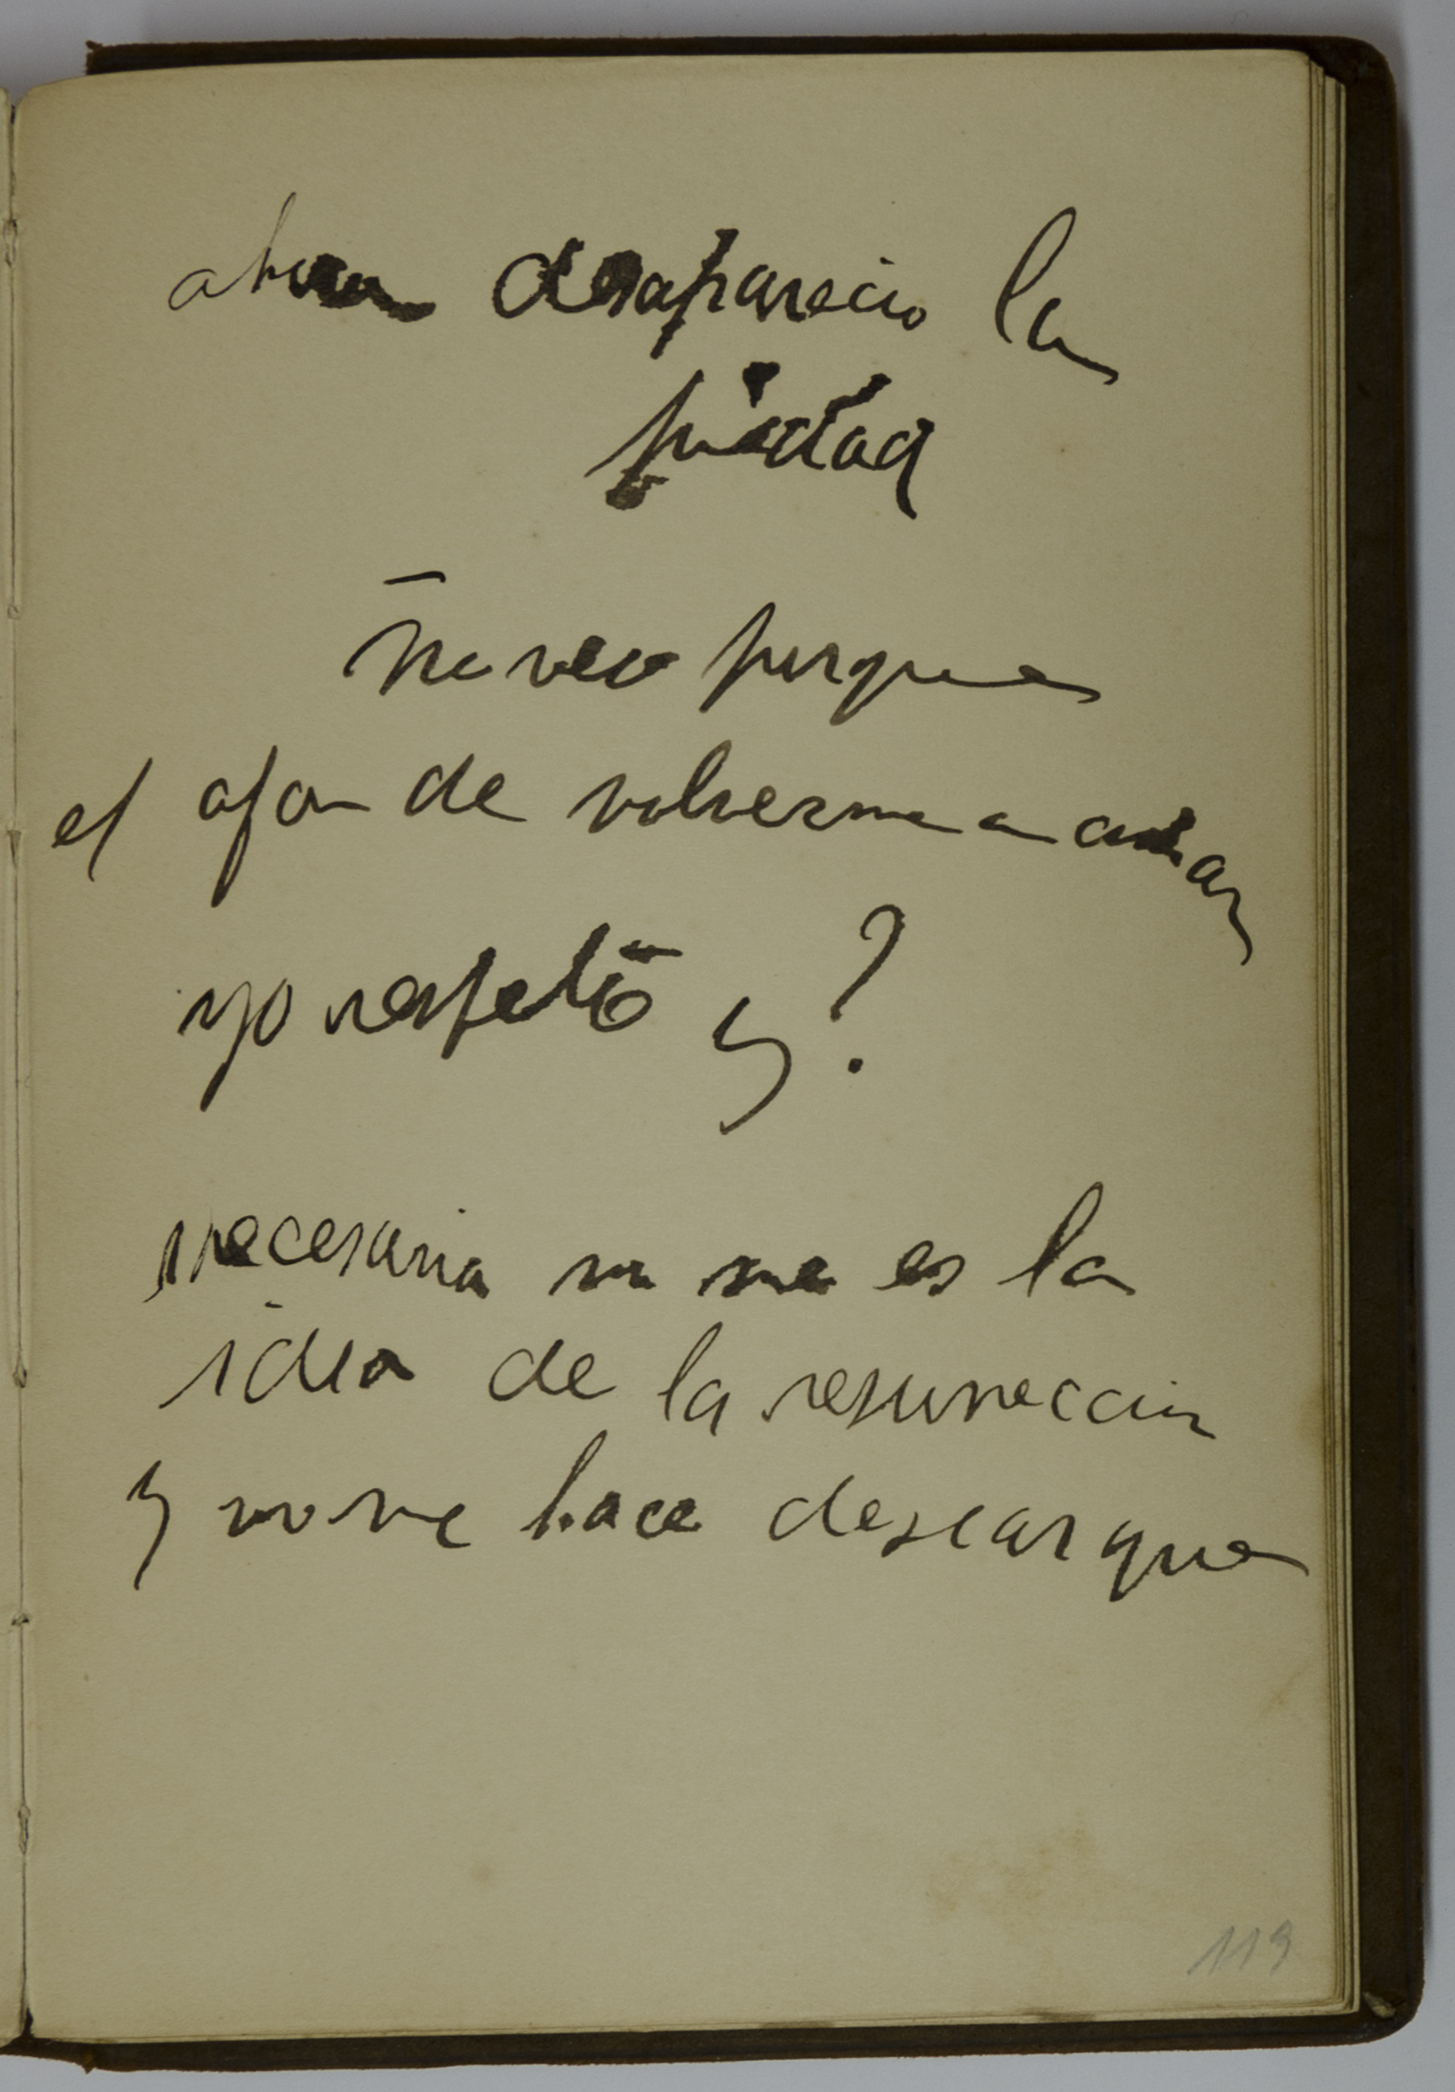 ahora desaparecio la
piedad
—
no veo porque
el afan de volverme a
yo respeto y?
necesaria no me es la
idea de la resurreccion
y no me hace desear que
119